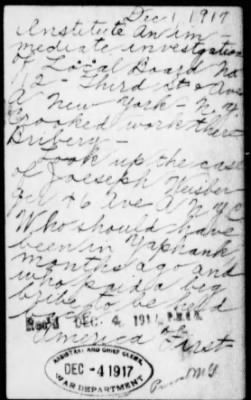 Dec 1, 1917
Institute An im-
mediate investigation
of Local Board No
112 - Third St & Ave
A New York - N.Y.
Crooked work there
Bribery -
Look up the case
of Joeseph
& Ave A N.Y.C
Who should have
been in Yaphank
months ago and
who paid a big
bribe to be held
back
Rec'd DEC. 4, 1917
America First
ASSISTANT AND CHIEF CLERK,
DEC -4 1917
WAR DEPARTMENT